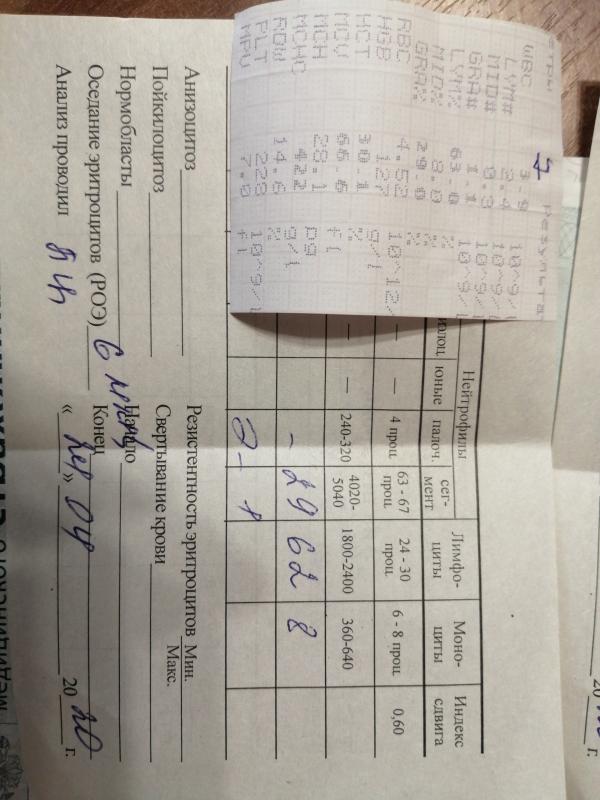 етры Результат
WBC 3.9 10^9/l
LYM# 2.4 10^9/l
MID# 0.3 10^9/l
GRA# 1.1 10^9/l
LYM% 63.0 %
MID% 8.0 %
GRA% 29.0 %
RBC 4.52 10^12/l
HGB 127 g/l
HCT 30.1 %
MCV 66.6 fl
MCH 28.1 pg
MCHC 422 g/l
RDW 14.6 %
PLT 228 10^9/l
MPV fl
Нейтрофилы Лимфо-циты Моно-циты Индекс сдвига
юные палоч. сег-мент
— — 4 проц. 63 - 67 проц. 24 - 30 проц. 6 - 8 проц. 0,60
— — 240-320 4020-5040 1800-2400 360-640
- 29 62 8
Э - 1
Анизоцитоз Резистентность эритроцитов Мин.
Макс.
Пойкилоцитоз Свертывание крови
Нормобласты Начало
Оседание эритроцитов (РОЭ) 6 мм/ч Конец
Анализ проводил « » 04 20 20 г.